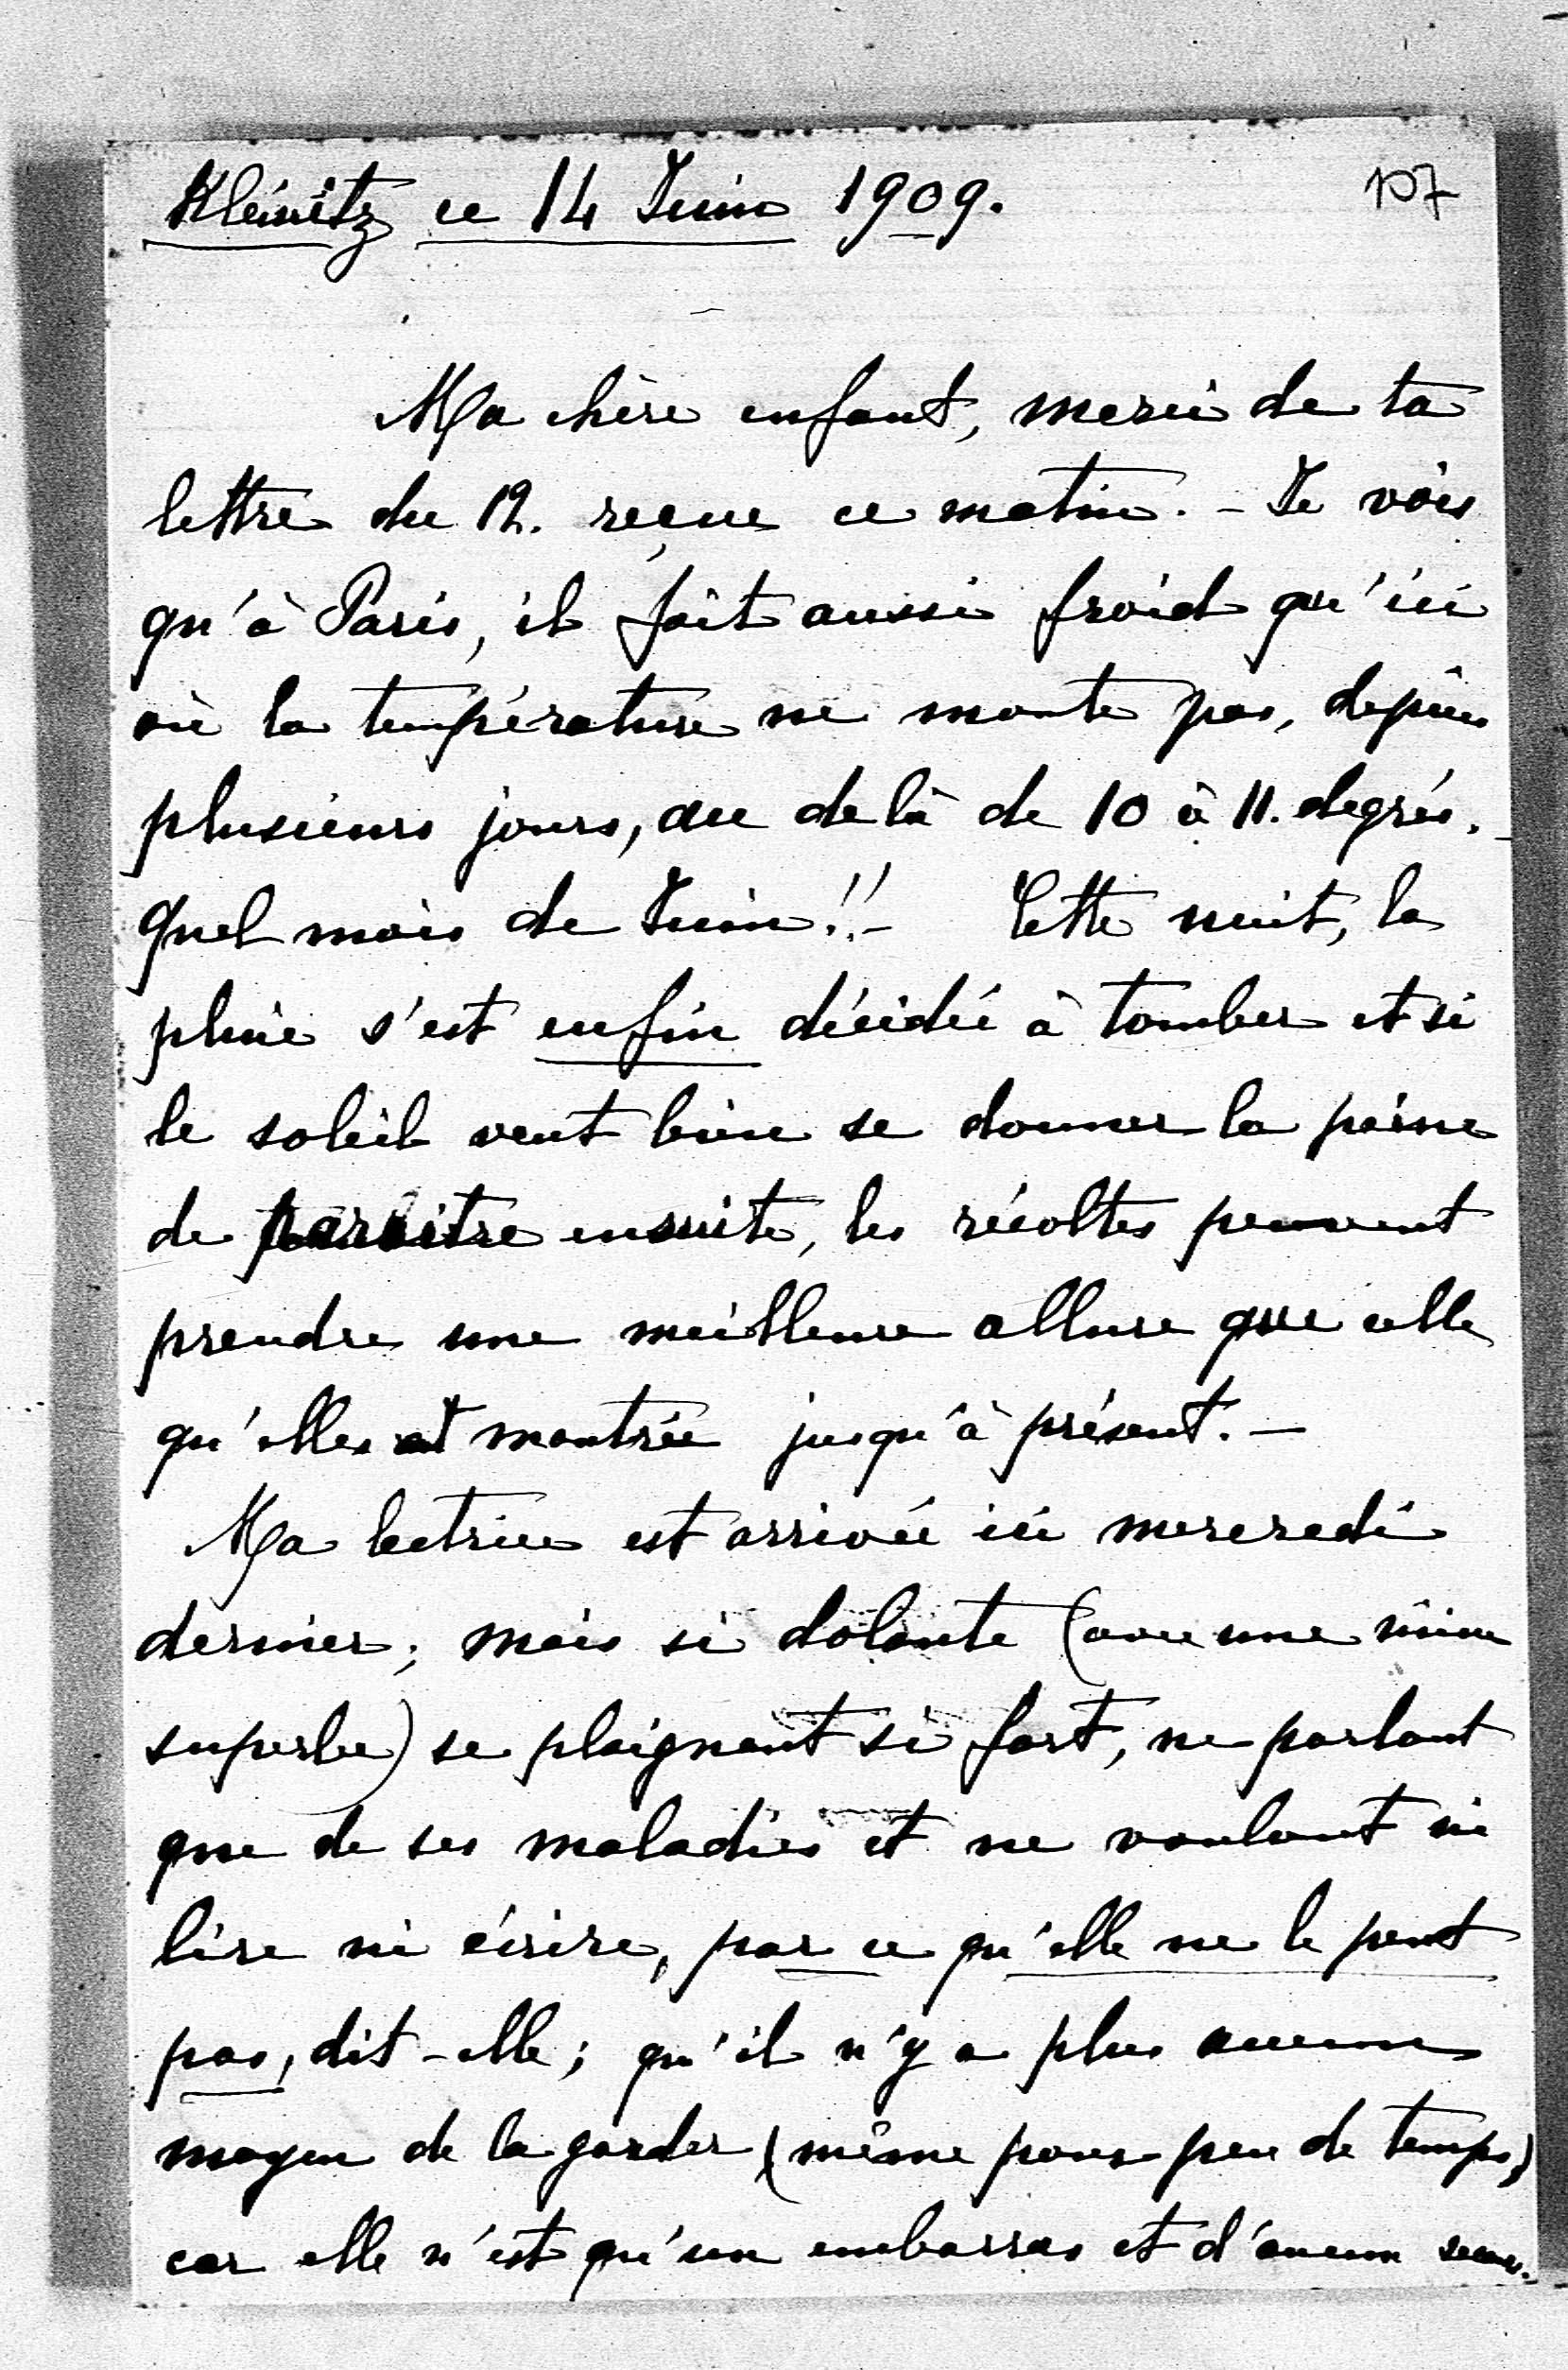 Kleinitz ce 14 Juin 1909.
107
Ma chère enfant, merci de ta
lettre du 12. reçue ce matin. - Je vois
qu'à Paris, il fait aussi froid qu'ici
où la température ne monte pas, depuis
plusieurs jours, au delà de 10 à 11. degrés. -
quel mois de Juin!! - Cette nuit, la
pluie s'est enfin décidée à tomber et si
le soleil veut bien se donner la peine
de paraître ensuite, les récoltes peuvent
prendre une meilleure allure que celle
qu'elles ont montrée jusqu'à présent. -
Ma lectrice est arrivée ici mercredi
dernier; mais si dolante (avec une mine
superbe) se plaignant si fort, ne parlant
que de ses maladies et ne voulant ni
lire ni écrire, par ce qu'elle ne le peut
pas, dit-elle; qu'il n'y a plus aucun
moyen de la garder (même pour peu de temps)
car elle n'est qu'un embarras et d'aucun secours.